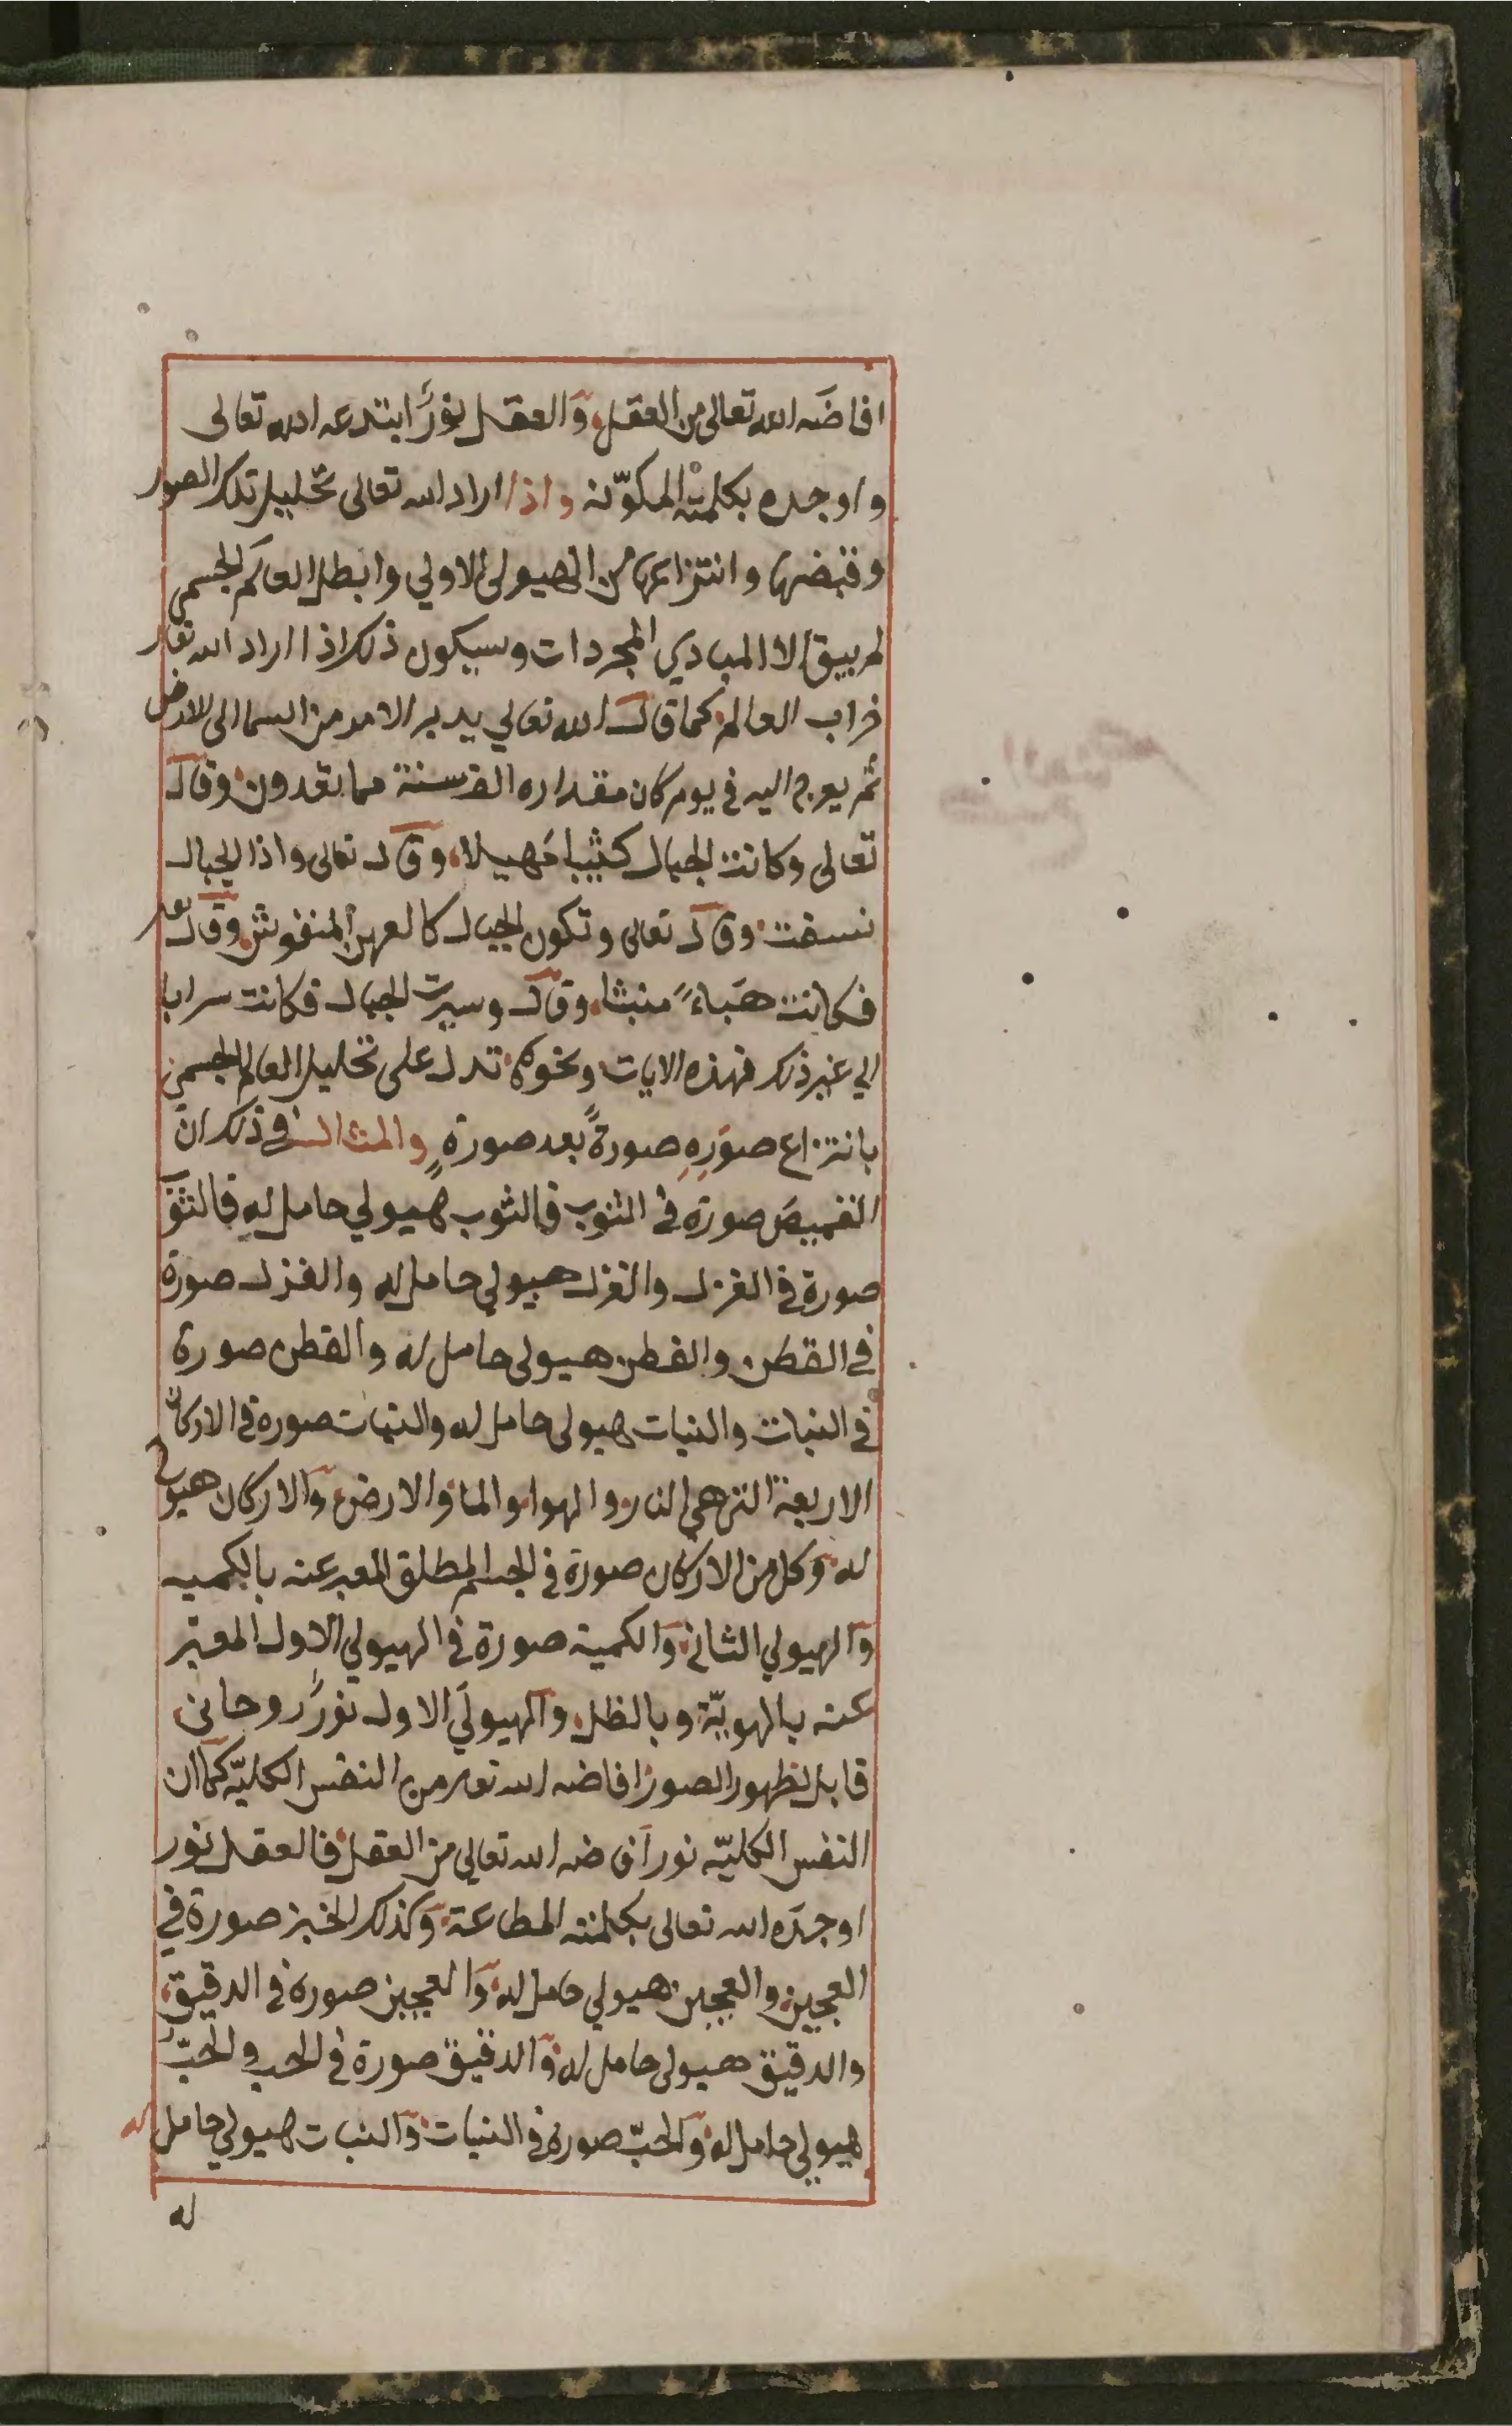 افاضَه الله تعالى من العقل والعقل نورٌ ابتدعه الله تعالى
واوجده بكلمته المكوّنة واذا اراد الله تعالى تحليل تلك الصور
وقبضها وانتزاعها من الهيولى الاولي وابطل العالم الجسمي
لم يبق الا المبادي المجردات وسيكون ذلك اذا اراد الله تعا
خراب العالم كما قال الله تعالي يدبر الامر من السما الى الارض
ثم يعرج اليه في يوم كان مقداره الف سنة مما تعدون وقال
تعالى وكانت الجبال كثيبا مَهيلا وقال تعالى واذا الجبال
نسفت وقال تعالى وتكون الجبال كالعهن المنفوش وقال تع
فكانت هَباءً منبثا وقال وسيرت الجبال فكانت سرابا
الي غير ذلك فهذه الايات ونحوها تدل على تحليل العالم الجسمي
بانتزاع صوَرِهِ صورةً بعد صورةٍ والمثال في ذلك ان
القميصَ صورة في الثوب فالثوب هيولي حامل له فالثوب
صورة في الغزل والغزل هيولي حامل له والغزل صورة
في القطن والقطن هيولى حامل له والقطن صورة
في النبات والنبات هيولى حامل له والنبات صورة في الاركان
الاربعة التي هي النار والهوا والما والارض والاركان هيولي
له وكل من الاركان صورة في الجسم المطلق المعبر عنه بالكميه
والهيولي الثاني والكمية صورة في الهيولي الاول المعبر
عنه بالهويّة وبالظل والهيولَي الاول نورٌ روحاني
قابل لظهور الصور افاضه الله تعا من النفس الكليّه كما ان
النفس الكليّه نور افاضه الله تعالي من العقل فالعقل نور
اوجدَه الله تعالى بكلمته المطاعة وكذلك الخبز صورة في
العجين والعجين هيولي حامل له والعجين صورة في الدقيق
والدقيق هيولى حامل له والدقيق صورة في الحب والحبّ
هيولي حامل له والحبّ صورة في النبات والنبات هيولي حامل له
له